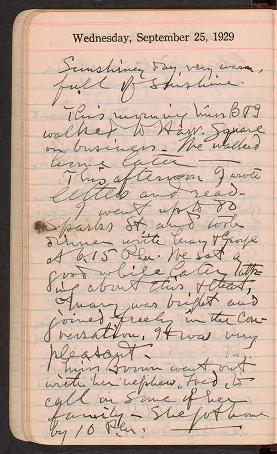 Wednesday, September 25, 1929
Sunshiney day, very warm,
full of sunshine.
This morning Miss B & I
walked to Harv. Square
on business - We walked
home later
This afternoon I wrote
letters and read -
I went up to 80
Sparks St and took
dinner with Mary & George
at 6.15 P.M. We sat a
good while later talk-
ing about this & that,
Mary was bright and
joined freely in the con-
versation, It was very
pleasant -
Miss Brown went out
with her nephew, Fred, to
call on some of her
family - She got home
by 10 P.M.